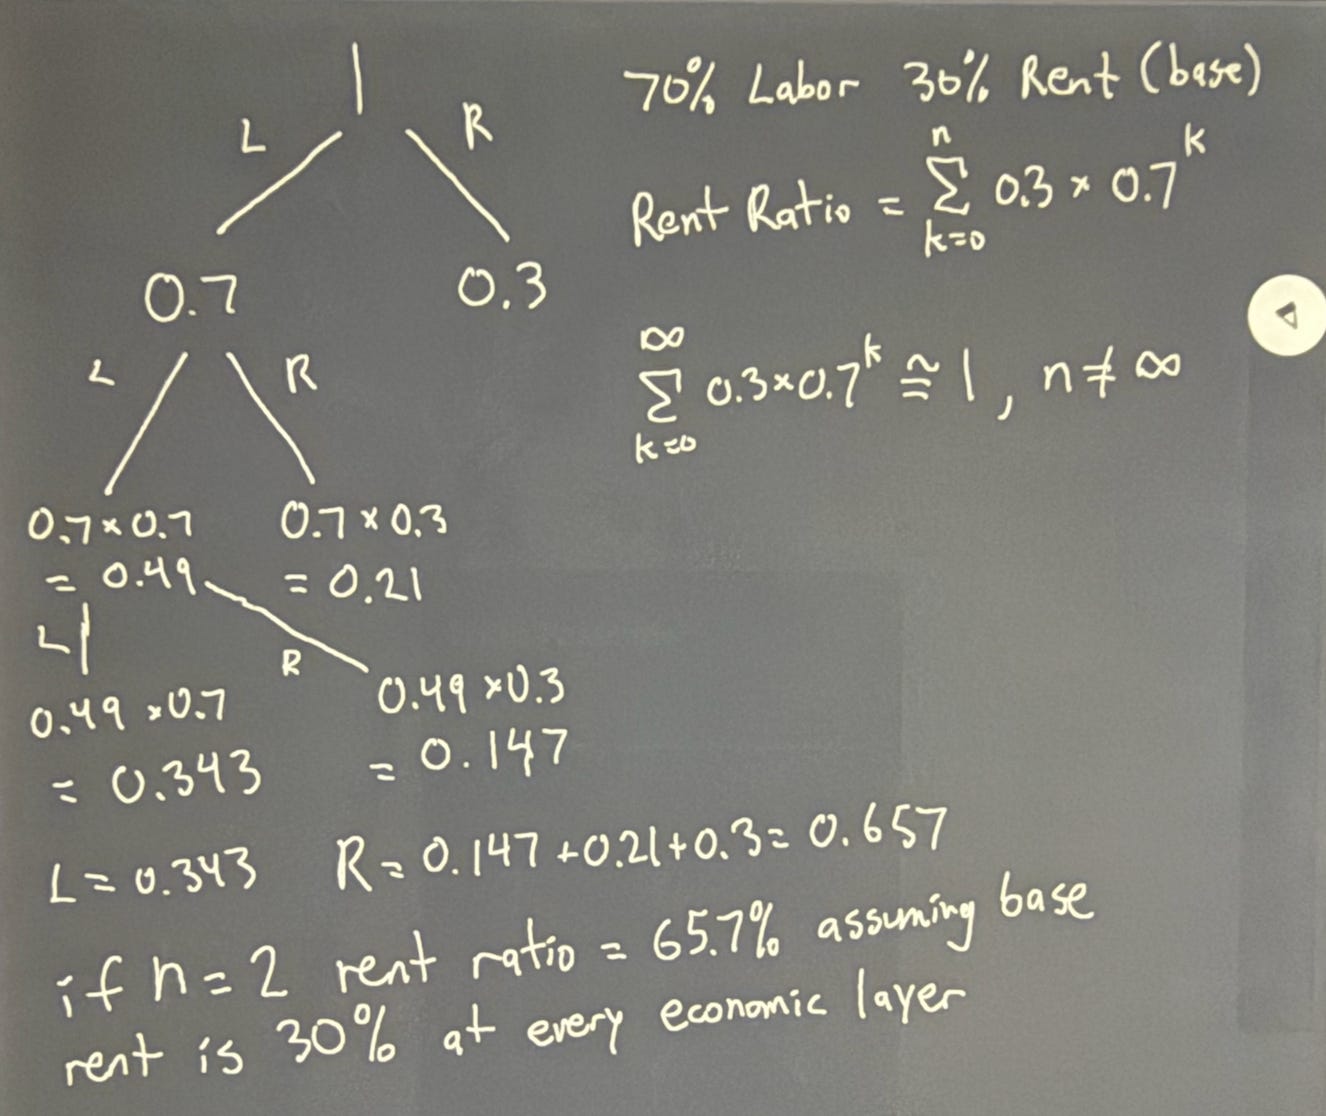 1
L R
0.7 0.3
L R
0.7 × 0.7 0.7 × 0.3
= 0.49 = 0.21
L R
0.49 × 0.7 0.49 × 0.3
= 0.343 = 0.147
L = 0.343 R = 0.147 + 0.21 + 0.3 = 0.657
if n = 2 rent ratio = 65.7% assuming base
rent is 30% at every economic layer
70% Labor 30% Rent (base)
n
Rent Ratio = Σ 0.3 × 0.7^k
k=0
∞
Σ 0.3×0.7^k ≅ 1, n ≠ ∞
k=0